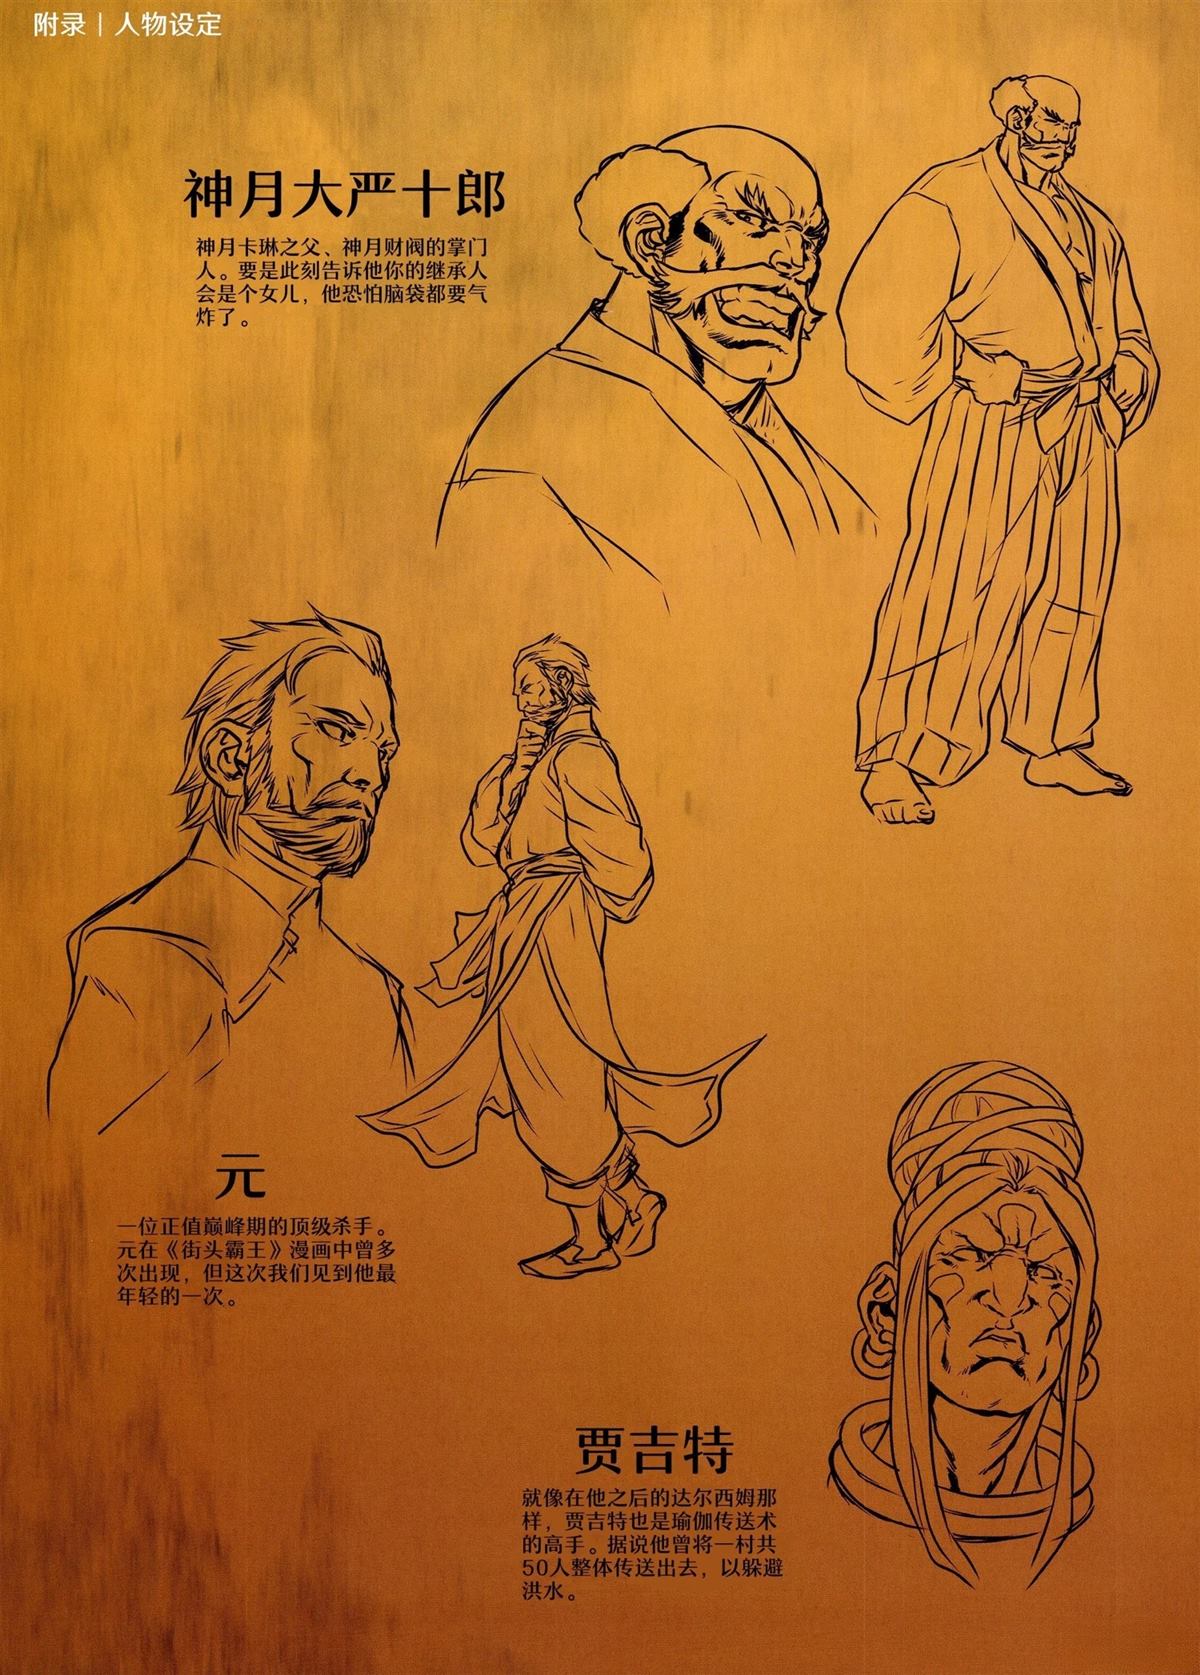 附录 | 人物设定
神月大严十郎
神月卡琳之父、神月财阀的掌门
人。要是此刻告诉他你的继承人
会是个女儿，他恐怕脑袋都要气
炸了。
元
一位正值巅峰期的顶级杀手。
元在《街头霸王》漫画中曾多
次出现，但这次我们见到他最
年轻的一次。
贾吉特
就像在他之后的达尔西姆那
样，贾吉特也是瑜伽传送术
的高手。据说他曾将一村共
50人整体传送出去，以躲避
洪水。